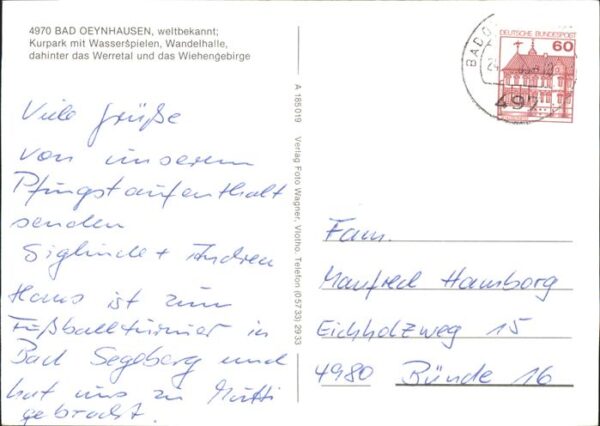 4970 BAD OEYNHAUSEN, weltbekannt;
Kurpark mit Wasserspielen, Wandelhalle,
dahinter das Werretal und das Wiehengebirge
Viele Grüße
von unserem
Pfingstaufenthalt
senden
Siglinde + Andrea
Hans ist zum
Fußballturnier in
Bad Segeberg und
hat uns zu Mutti
gebracht.
A 185019 Verlag Foto Wagner, Vlotho, Telefon (05733) 2933
DEUTSCHE BUNDESPOST
60
BAD
497
Fam.
Manfred Hamborg
Eichholzweg 15
4980 Bünde 16